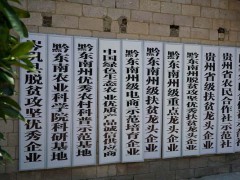 岑巩县脱贫攻坚优秀企业
黔东南农业科学院科研基地
黔东南州优秀农村科普示范基地
中国绿色生态农业优质产品诚信供应商
黔东南州级电商示范培育企业
黔东南州级扶贫龙头企业
黔东南州级重点龙头企业
贵州省级扶贫龙头企业
贵州省农民合作社示范社